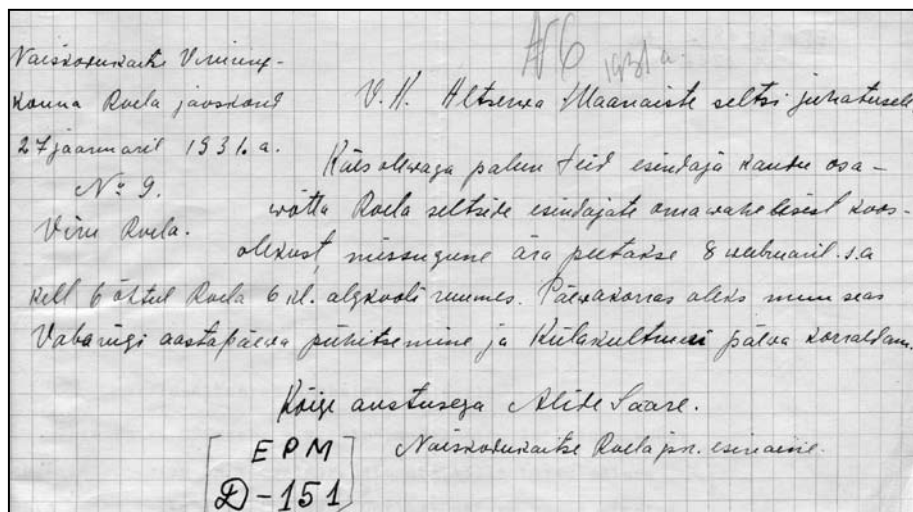 № 6
1931 a.
Naiskodukaitse Viruring-
konna Roela jaoskond
27 jaanuaril 1931. a.
№ 9.
Viru Roela.
V. A. Altserva Maanaiste seltsi juhatusele
Käesolevaga palun Teid esindaja kaudu osa-
wõtta Roela seltside esindajate omawahelisest koos-
olekust, missugune ära peetakse 8 weebruaril. s.a
kell 6 õhtul Roela 6 kl. algkooli ruumes. Päewakorras oleks muu seas
Vabariigi aastapäewa pühitsemine ja Külakultuuri päewa korraldam.
Kõige austusega Alide Saare.
Naiskodukaitse Roela jsk. esinaine.
EPM
D-151